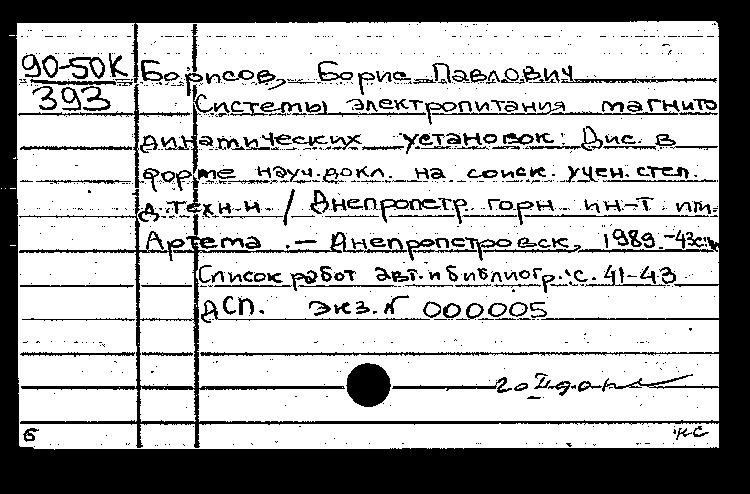 90-50К Борисов, Борис Павлович
393 Системы электропитания магнито
динамических установок: Дис. в
форме науч. докл. на соиск. учен. степ.
д.техн.н. / Днепропетр. горн. ин-т им.
Артема. — Днепропетровск, 1989. -43с.
Список работ авт. и библиогр.: с. 41-43
ДСП. Экз. N 000005
б